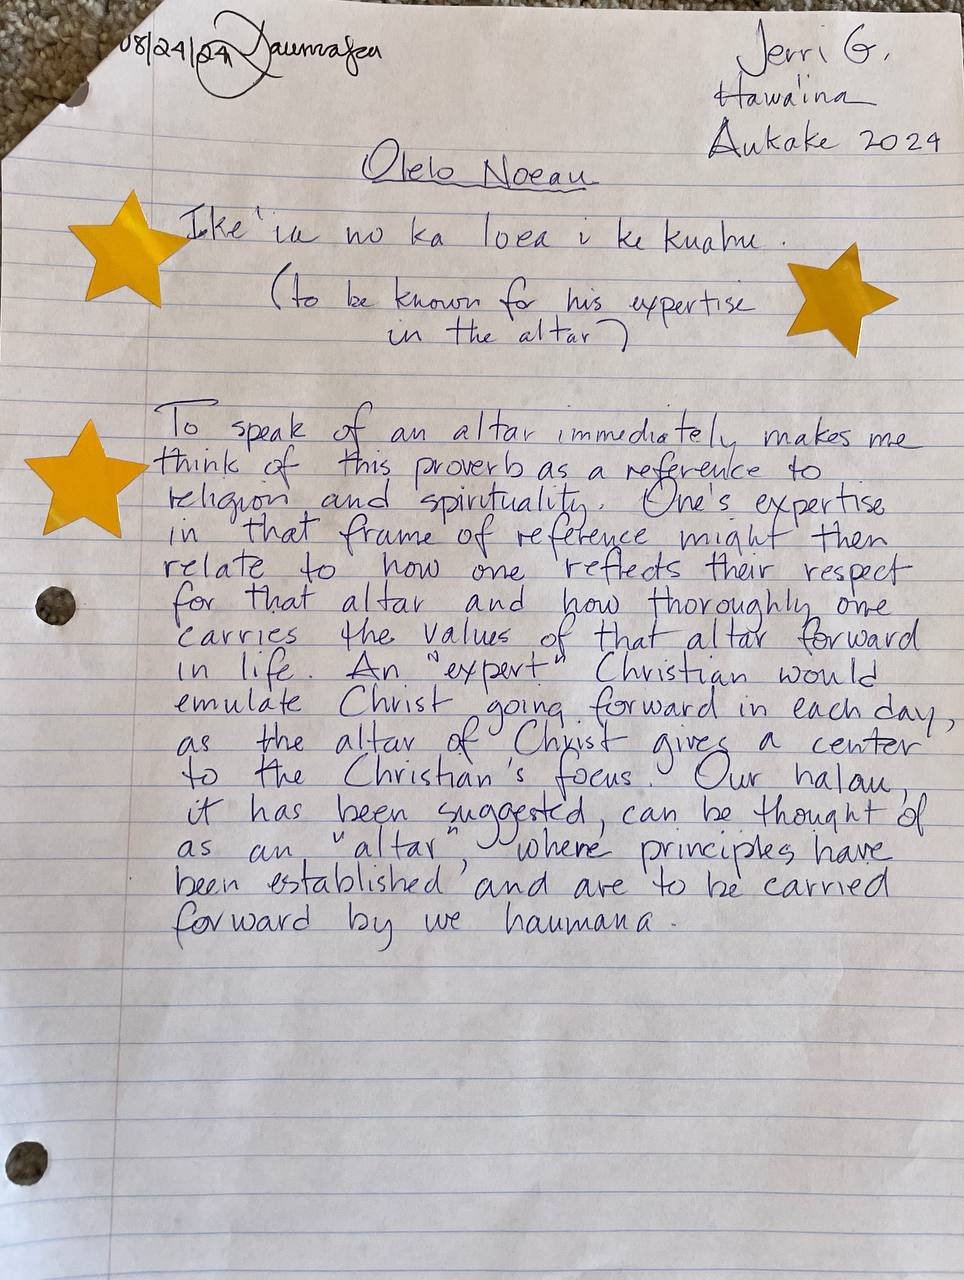 08/24/24
Jerri G.
Hawaína
Aukake 2024
Olelo Noeau
Ike 'ia no ka loea i ke kuahu.
(to be known for his expertise
in the altar)
To speak of an altar immediately makes me
think of this proverb as a reference to
religion and spirituality. One's expertise
in that frame of reference might then
relate to how one reflects their respect
for that altar and how thoroughly one
carries the values of that altar forward
in life. An "expert" Christian would
emulate Christ going forward in each day,
as the altar of Christ gives a center
to the Christian's focus. Our halau,
it has been suggested, can be thought of
as an "altar", where principles have
been established and are to be carried
forward by we haumana.